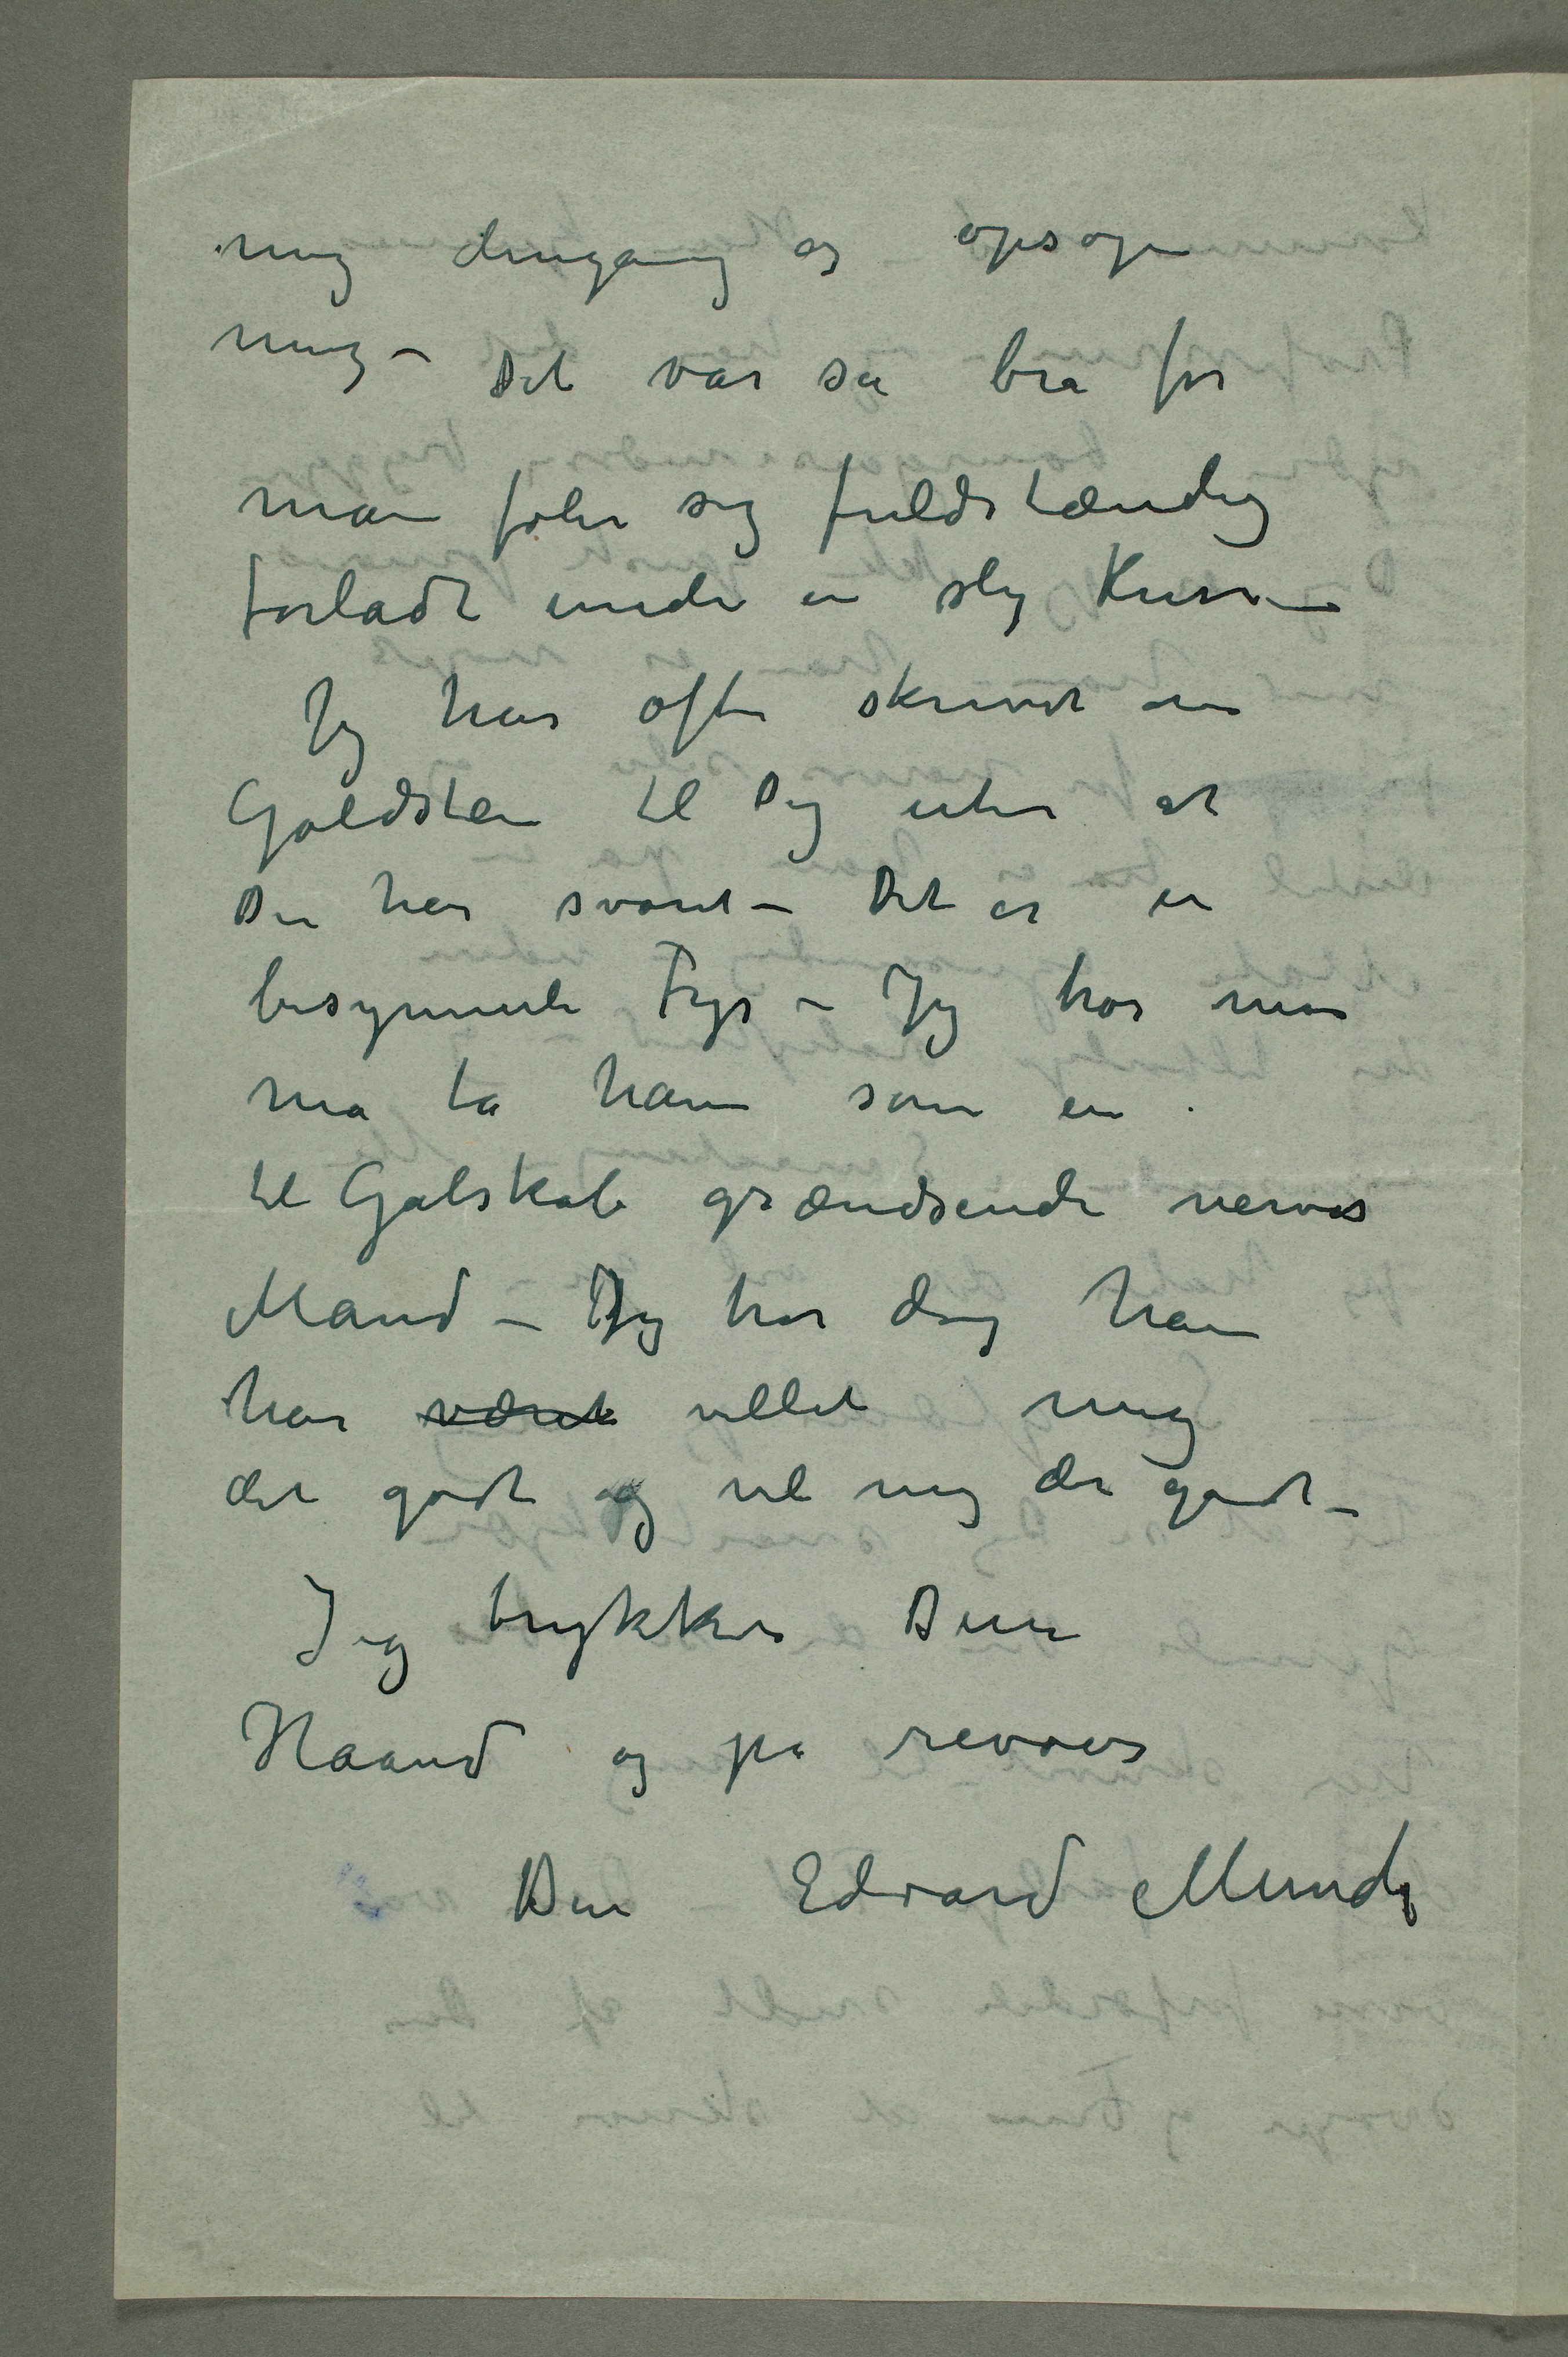 mig dengang og opsøge
mig – Det var så bra for
man føler sig fuldstændig
forladt under en slig Kur –
Jeg har ofte skrevet om
Goldstein til Dig uten at
Du har svaret – Det er en
besynnerlig Fyr – Jeg tror man
må ta ham som en
til Galskab grændsende nervøs
Mand – Jeg tror dog han
har været villet mig
det godt og vil mig det godt –
Jeg trykker Din
Haand og på revoir
Din Edvard Munch